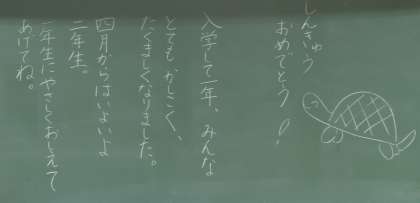 しんきゅう
おめでとう!
入学して一年、みんな
とてもかしこく、
たくましくなりました。
四月からはいよいよ
二年生。
一年生にやさしくおしえて
あげてね。